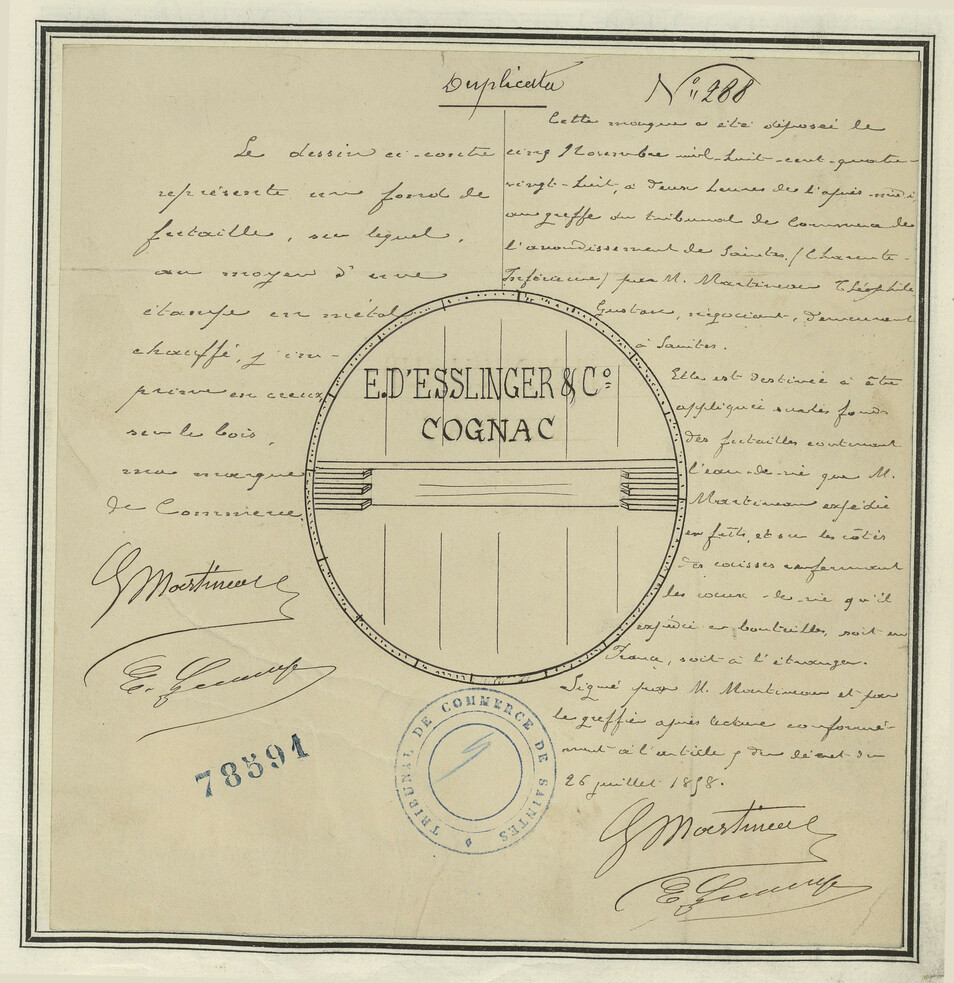 Duplicata
N° 288
Le dessin ci-contre
représente un fond de
futaille, sur lequel,
au moyen d'une
étampe en métal
chauffé, j'im-
prime en creux
sur le bois,
ma marque
de Commerce
G Martineau
Cette marque a été déposée le
cinq Novembre mil-huit-cent-quatre-
vingt-huit, à deux heures de l'après-midi,
au greffe du tribunal de Commerce de
l'arrondissement de Saintes, (Charente-
Inférieure) par M. Martineau Théophile
Gustave, négociant, demeurant
à Saintes.
Elle est destinée à être
appliquée sur les fonds
des futailles contenant
l'eau-de-vie que M.
Martineau expédie
en fûts, et sur les côtés
des caisses renfermant
les eaux-de-vie qu'il
expédie en bouteilles, soit en
France, soit à l'étranger.
Signé par M. Martineau et par
le greffier après lecture conformé-
ment à l'article 5 du décret du
26 juillet 1858.
G Martineau
E. D'ESSLINGER & Co
COGNAC
TRIBUNAL DE COMMERCE DE SAINTES
78591